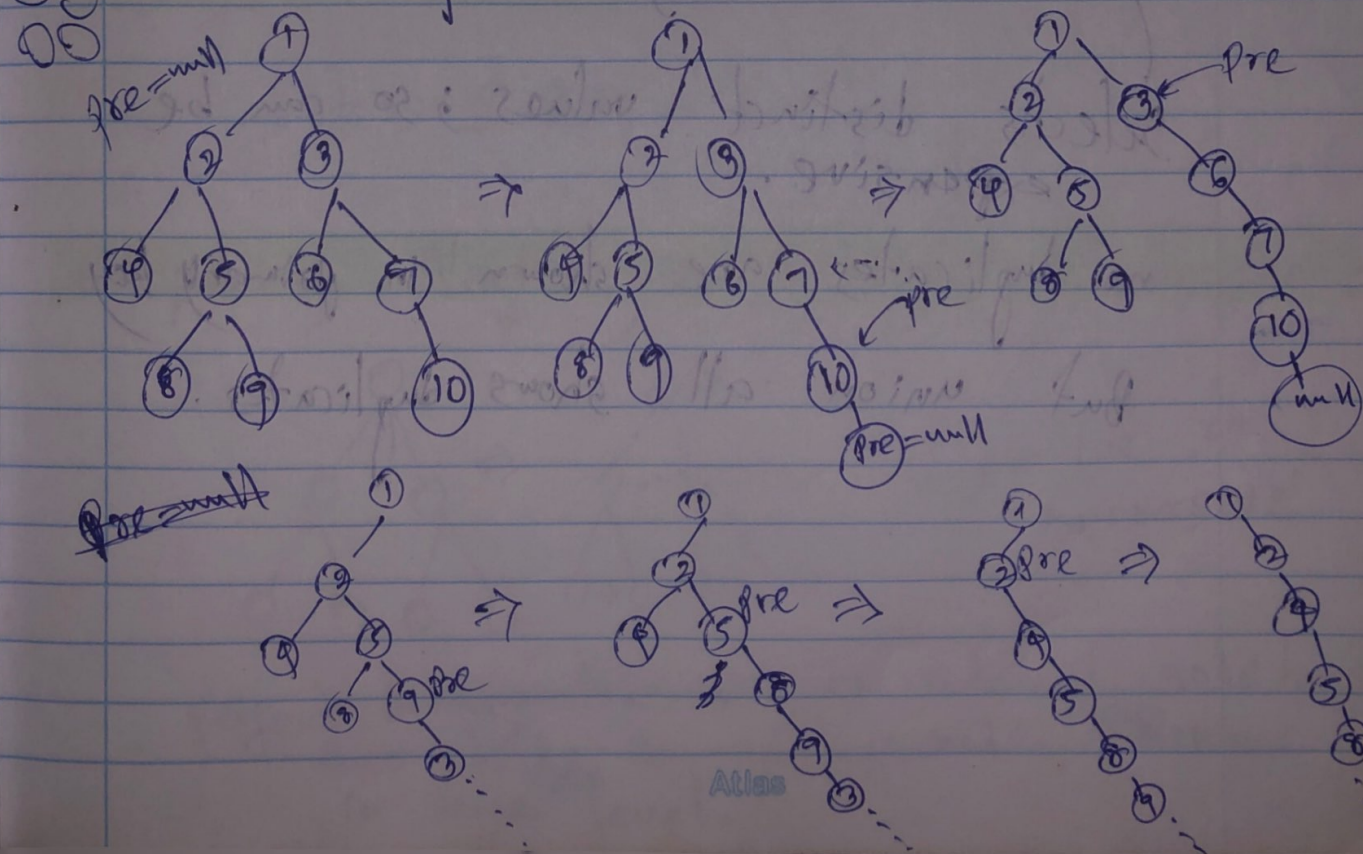 1
pre=null
2 3
4 5 6 7
8 9 10
⇒
1
2 3
4 5 6 7
pre
8 9 10
pre=null
⇒
1
pre
2 3
4 5 6
7
8 9
10
null
pre=null
1
2
4 5
8 9 pre
3
⇒
1
2
4 5 pre
8
9
3
⇒
1
2 pre
4
5
8
9
⇒
1
2
4
5
8
Atlas